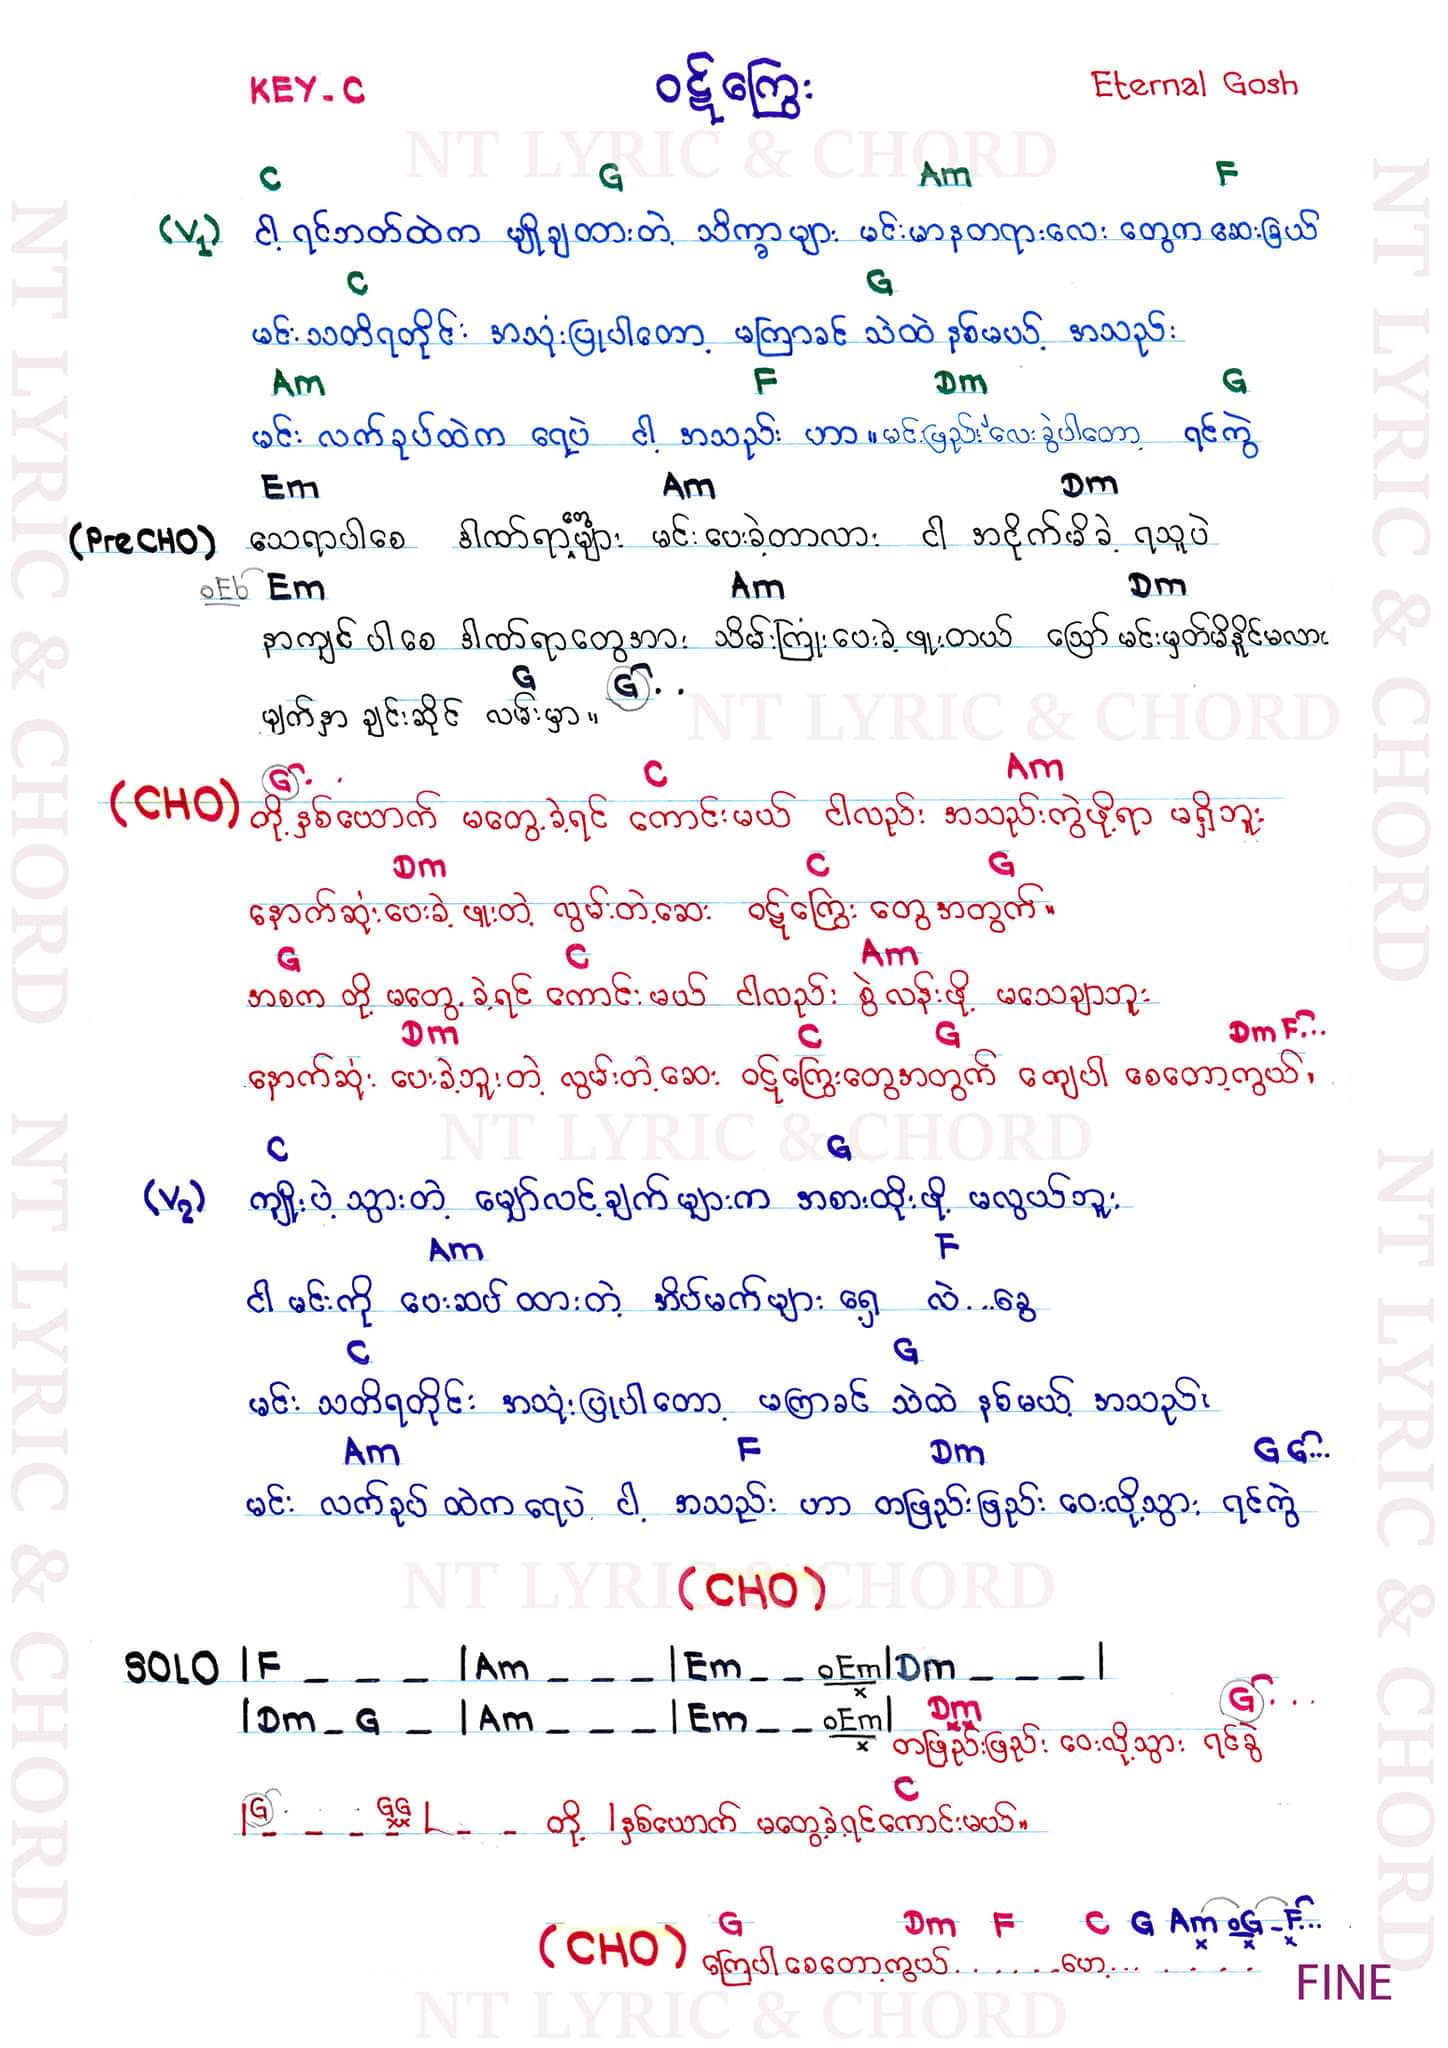 KEY-C ဝဋ်ကြွေး Eternal Gosh
NT LYRIC & CHORD
C G Am F
(V1) ငါ့ ရင်ဘတ်ထဲက မျိုချထားတဲ့ သိက္ခာများ မင်းမာနတရားလေး တွေကဆေးခြယ်
C G
မင်းသတိရတိုင်း အသုံးပြုပါတော့ မကြာခင် သဲထဲ နစ်မယ့် အသည်း
Am F Dm G
မင်း လက်ခုပ်ထဲက ရေပဲ ငါ့ အသည်း ဟာ။ မင်းဖြည်းလေးခွဲပါတော့ ရင်ကွဲ
Em Am Dm
(PreCHO) သေရာပါစေ ဒါဏ်ရာတွေများ မင်းပေးခဲ့တာလား ငါ အငိုက်မိခဲ့ ရသူပဲ
oEb Em Am Dm
နာကျင်ပါစေ ဒါဏ်ရာတွေအား သိမ်းကြုံးပေးခဲ့ဖူးတယ် ဪ မင်းမှတ်မိနိူင်မလား
G G..
မျက်နှာ ချင်းဆိုင် လမ်းမှာ။
NT LYRIC & CHORD
G.. C Am
(CHO) တို့နှစ်ယောက် မတွေ့ခဲ့ရင် ကောင်းမယ် ငါလည်း အသည်းကွဲဖို့ရာ မရှိဘူး
Dm C G
နောက်ဆုံးပေးခဲ့ဖူးတဲ့ လွမ်းတဲ့ဆေး ဝဋ်ကြွေး တွေအတွက်။
G C Am
အစက တို့ မတွေ့ခဲ့ရင် ကောင်းမယ် ငါလည်း စွဲလန်းဖို့ မသေချာဘူး
Dm C G Dm F...
နောက်ဆုံး ပေးခဲ့ဘူးတဲ့ လွမ်းတဲ့ဆေး ဝဋ်ကြွေးတွေအတွက် ကျေပါ စေတော့ကွယ်,
NT LYRIC & CHORD
C G
(V2) ကျိုးပဲ့သွားတဲ့ မျှော်လင့်ချက်များက အစားထိုးဖို့ မလွယ်ဘူး
Am F
ငါ မင်းကို ပေးဆပ်ထားတဲ့ အိပ်မက်များ ရှေ့ လဲ...ခွေ
C G
မင်း သတိရတိုင်း အသုံးပြုပါတော့ မကြာခင် သဲထဲ နစ်မယ့် အသည်း
Am F Dm G G...
မင်း လက်ခုပ်ထဲကရေပဲ ငါ့ အသည်း ဟာ တဖြည်းဖြည်း ဝေးလို့သွား ရင်ကွဲ
NT LYRIC & CHORD
(CHO)
SOLO |F _ _ _ |Am _ _ _ |Em _ _ oEm|Dm _ _ _ |
|Dm _ G _ |Am _ _ _ |Em _ _ oEm| Dm G...
တဖြည်းဖြည်း ဝေးလို့သွား ရင်ခွဲ
C
|G _ _ _ GG |_ _ _ တို့ |နှစ်ယောက် မတွေ့ခဲ့ရင်ကောင်းမယ်။
G Dm F C G Am oG _ F...
(CHO) ကြေပါစေတော့ကွယ်.......ဟေ့........
FINE
NT LYRIC & CHORD
NT LYRIC & CHORD
NT LYRIC & CHORD
NT LYRIC & CHORD
NT LYRIC & CHORD